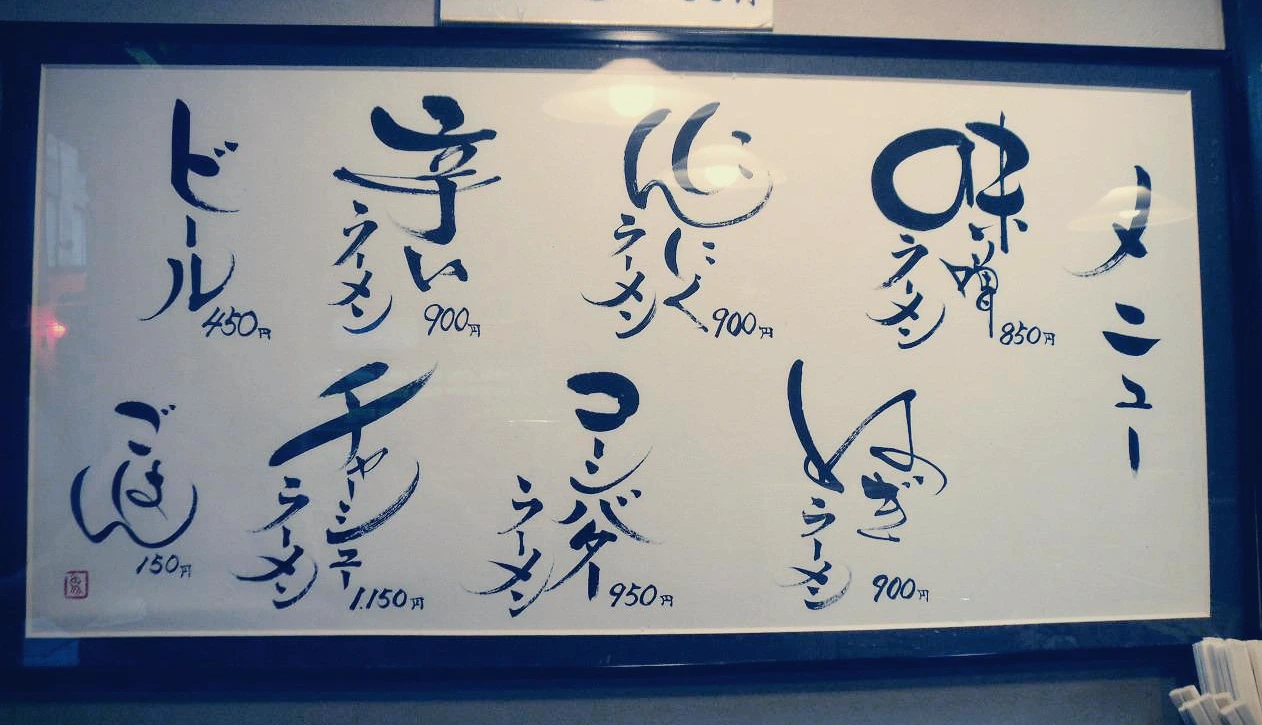 メニュー
味噌ラーメン 850円
にんにくラーメン 900円
辛いラーメン 900円
ビール 450円
ねぎラーメン 900円
コーンバターラーメン 950円
チャーシューラーメン 1,150円
ごはん 150円